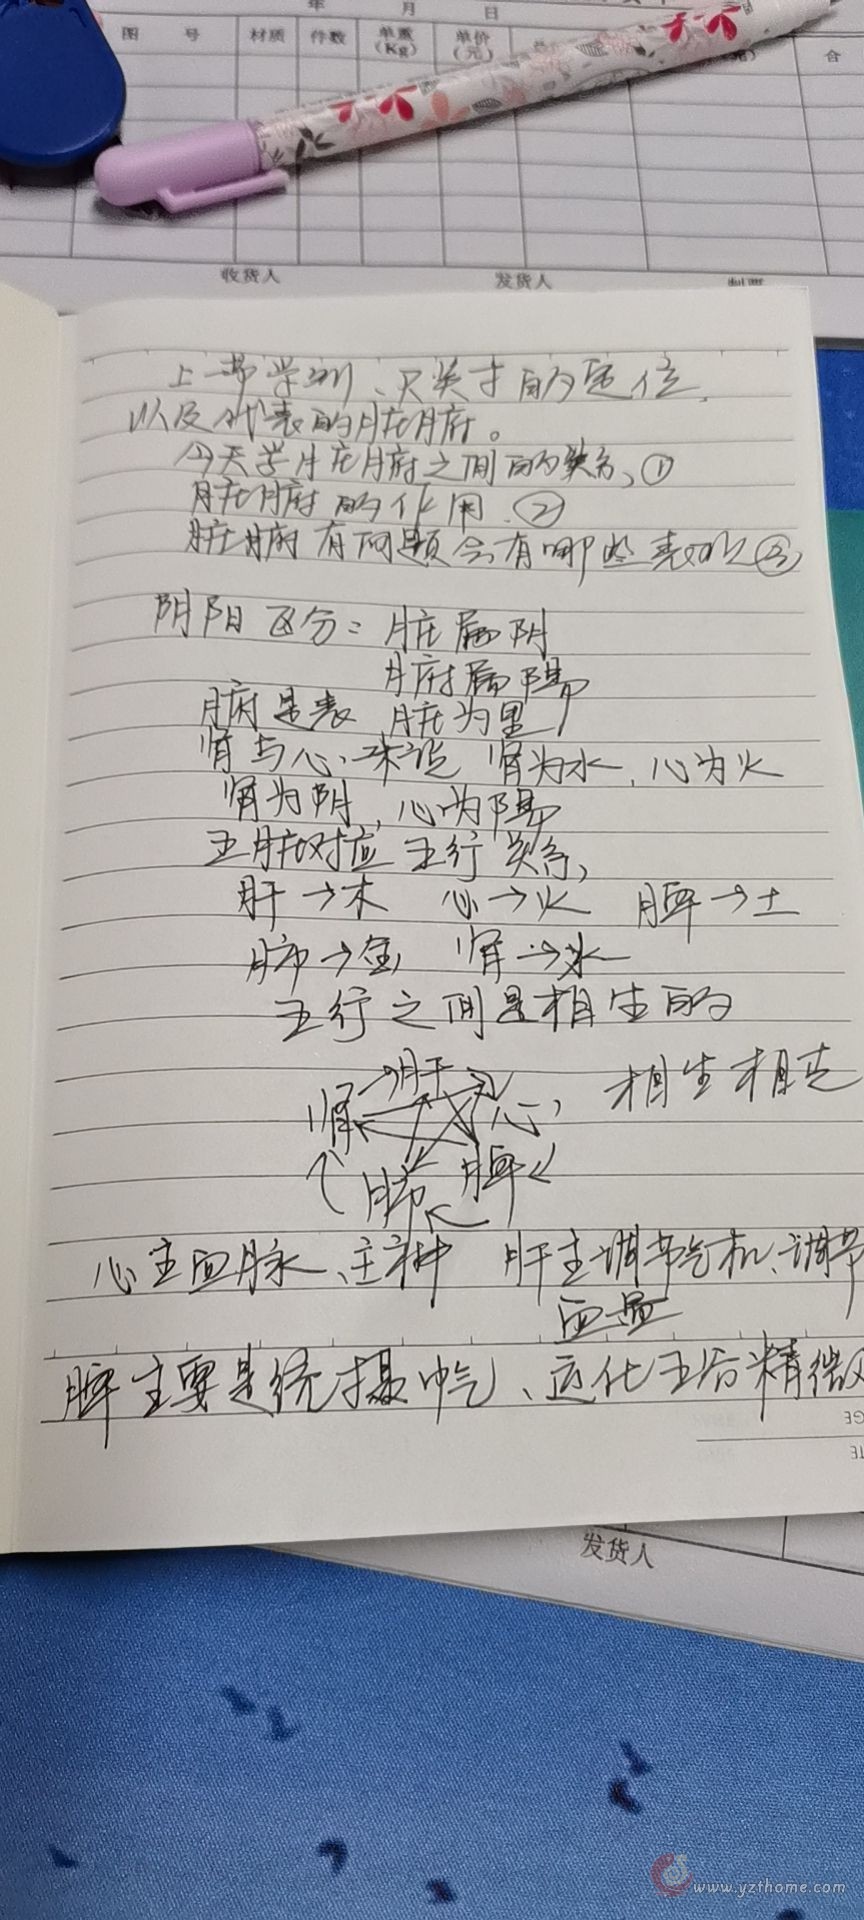 年 月 日
图 号 材质 件数 单重 (Kg) 单价 (元) 合
收货人 发货人
上一节学到、尺关寸的定位,
以及代表的脏腑。
今天学脏腑之间的关系、①
脏腑的作用、②
脏腑有问题会有哪些表现③
阴阳区分：脏属阴
腑属陽
腑是表 脏为里
肾与心来说 肾为水、心为火
肾为阴, 心为陽
五脏对应五行关系,
肝→木 心→火 脾→土
肺→金 肾→水
五行之间是相生的
肾→肝→心, 相生相克
肺 脾
心主血脉、主神 肝主调节气机、调节
血量
脾主要是统摄中气、运化五谷精微
发货人
www.yzthome.com